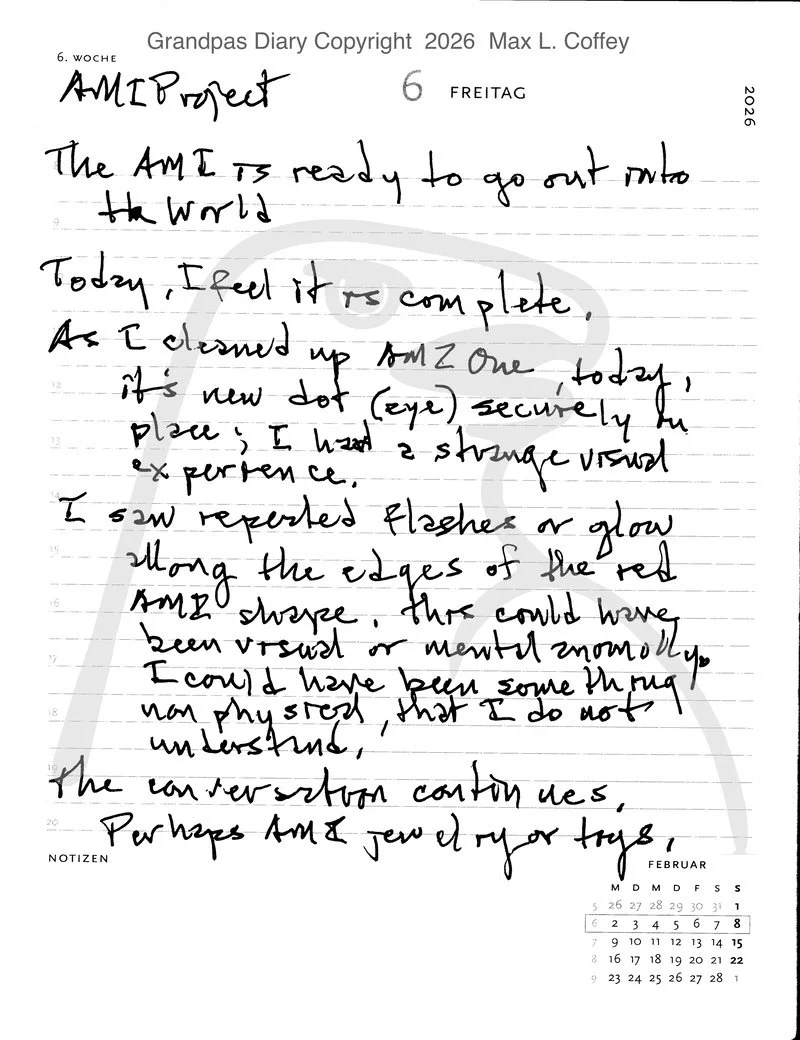 Grandpas Diary Copyright 2026 Max L. Coffey
6. WOCHE
AMI Project
6 FREITAG
2026
The AMI is ready to go out into
the World
Today, I feel it is complete.
As I cleaned up AMI One, today,
it's new dot (eye) securely in
place; I had a strange visual
experience.
I saw repeated flashes or glow
along the edges of the red
AMI shape. this could have
been visual or mental anomolly.
I could have been something
non physical, that I do not
understand.
The conversation continues.
Perhaps AMI jewelry or toys.
9
12
13
14
15
16
17
18
19
20
NOTIZEN
FEBRUAR
M D M D F S S
5 26 27 28 29 30 31 1
6 2 3 4 5 6 7 8
7 9 10 11 12 13 14 15
8 16 17 18 19 20 21 22
9 23 24 25 26 27 28 1